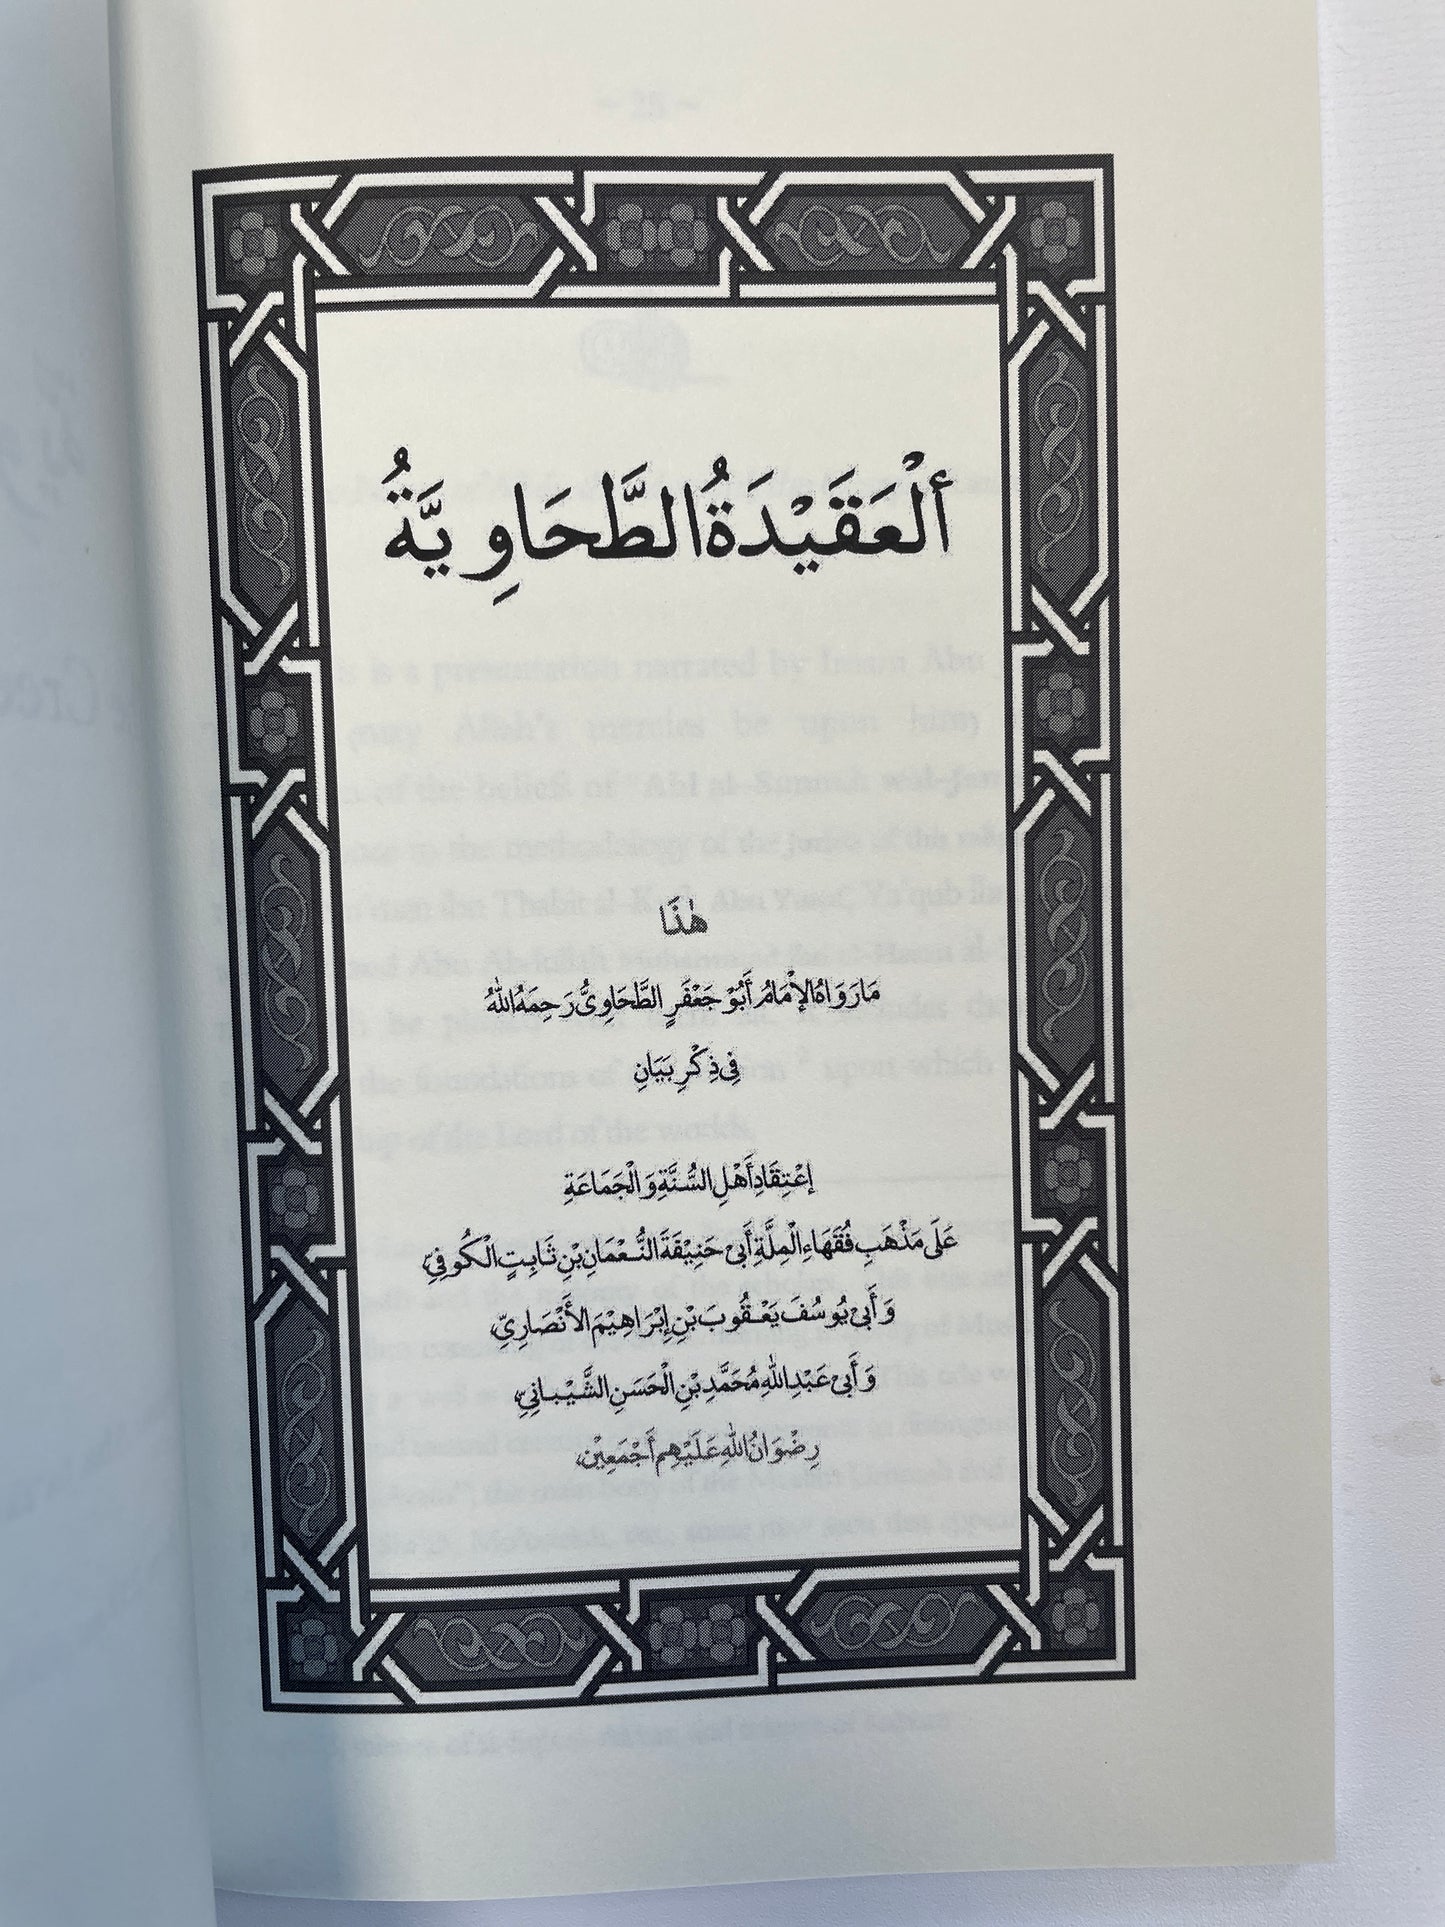 أَلْعَقَيْدَةُ الطَّحَاوِيَّةُ
هٰذَا
مَا رَوَاهُ الْإِمَامُ أَبُوْ جَعْفَرٍ الطَّحَاوِىُّ رَحِمَهُ اللّٰهُ
فِى ذِكْرِ بَيَانِ
إعْتِقَادِ أَهْلِ السُّنَّةِ وَالْجَمَاعَةِ
عَلَى مَذْهَبِ فُقَهَاءِ الْمِلَّةِ أَبِىْ حَنِيْفَةَ النُّعْمَانِ بْنِ ثَابِتٍ الْكُوفِيِّ
وَأَبِىْ يُوسُفَ يَعْقُوبَ بْنِ إِبْرَاهِيْمَ الأَنْصَارِيِّ
وَأَبِىْ عَبْدِ اللّٰهِ مُحَمَّدِ بْنِ الْحَسَنِ الشَّيْبَانِيِّ
رِضْوَانُ اللّٰهِ عَلَيْهِم أَجْمَعِيْنَ